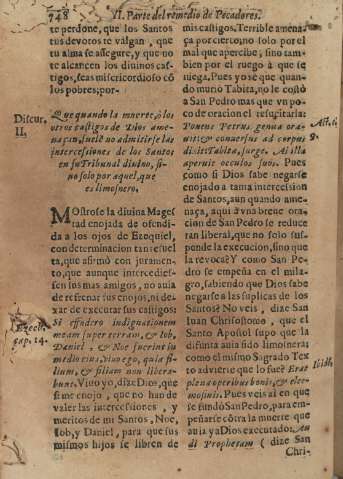 748 II. Parte del remedio de Pecadores.
te perdone, que los Santos
tus devotos te valgan, que
tu alma se assegure, y que no
te alcancen los divinos castigos,
seas misericordioso có
los pobres; por-
Discur.
II.
Que quando la muerte, ò los
otros castigos de Dios amenaçan,
suele no admitirse las
intercessiones de los Santos
en su Tribunal divino, sino
solo por aquel, que
es limosnero.
MOstrose la divina Magestad
enojada de ofendida
a los ojos de Ezequiel,
con determinacion tan resuelta,
que afirmó con juramento,
que aunque intercediessen
sus mas amigos, no avia
de refrenar sus enojos, ni dexar
de executar sus castigos:
Ezech.
cap. 14.
Si effudero indignationem
meam super terram, & Iob,
Daniel, & Noe fuerint in
medio eius, vivo ego, quia filium,
& filiam non liberabunt.
Vivo yo, dize Dios, que
si me enojo, que no han de
valer las intercessiones, y
meritos de mis Santos, Noe,
Iob, y Daniel, para que sus
mismos hijos se libren de
mis castigos. Terrible amenaça
por cierto, no solo por el
mal que apercibe, sino tambien
por el ruego à que se
niega. Pues yo sè que quando
murió Tabita, no le costó
a San Pedro mas que vn poco
de oracion el resucitarla:
Act. c.
9.
Ponens Petrus genua oravit:
& conversus ad corpus
dixit: Tabita, surge. At illa
aperuit occulos suos. Pues
como si Dios sabe negarse
enojado a tanta intercession
de Santos, aun quando amenaça,
aqui à vna breve oracion
de San Pedro se reduce
tan liberal, que no solo suspende
la execucion, sino que
la revoca? Y como San Pedro
se empeña en el milagro,
sabiendo que Dios sabe
negarse a las suplicas de los
Santos? No veis, dize San
Iuan Chrisostomo, que el
Santo Apostol supo que la
difunta avia sido limosnera;
como el mismo Sagrado Texto
advierte que lo fue?
Ibidē.
Erat
plena operibus bonis, & elemosinis.
Pues veis al en que
se fundò San Pedro, para empeñarse
cōtra la muerte que
avia ya Dios executado: Audi
Prophetam (dize San
Chri-